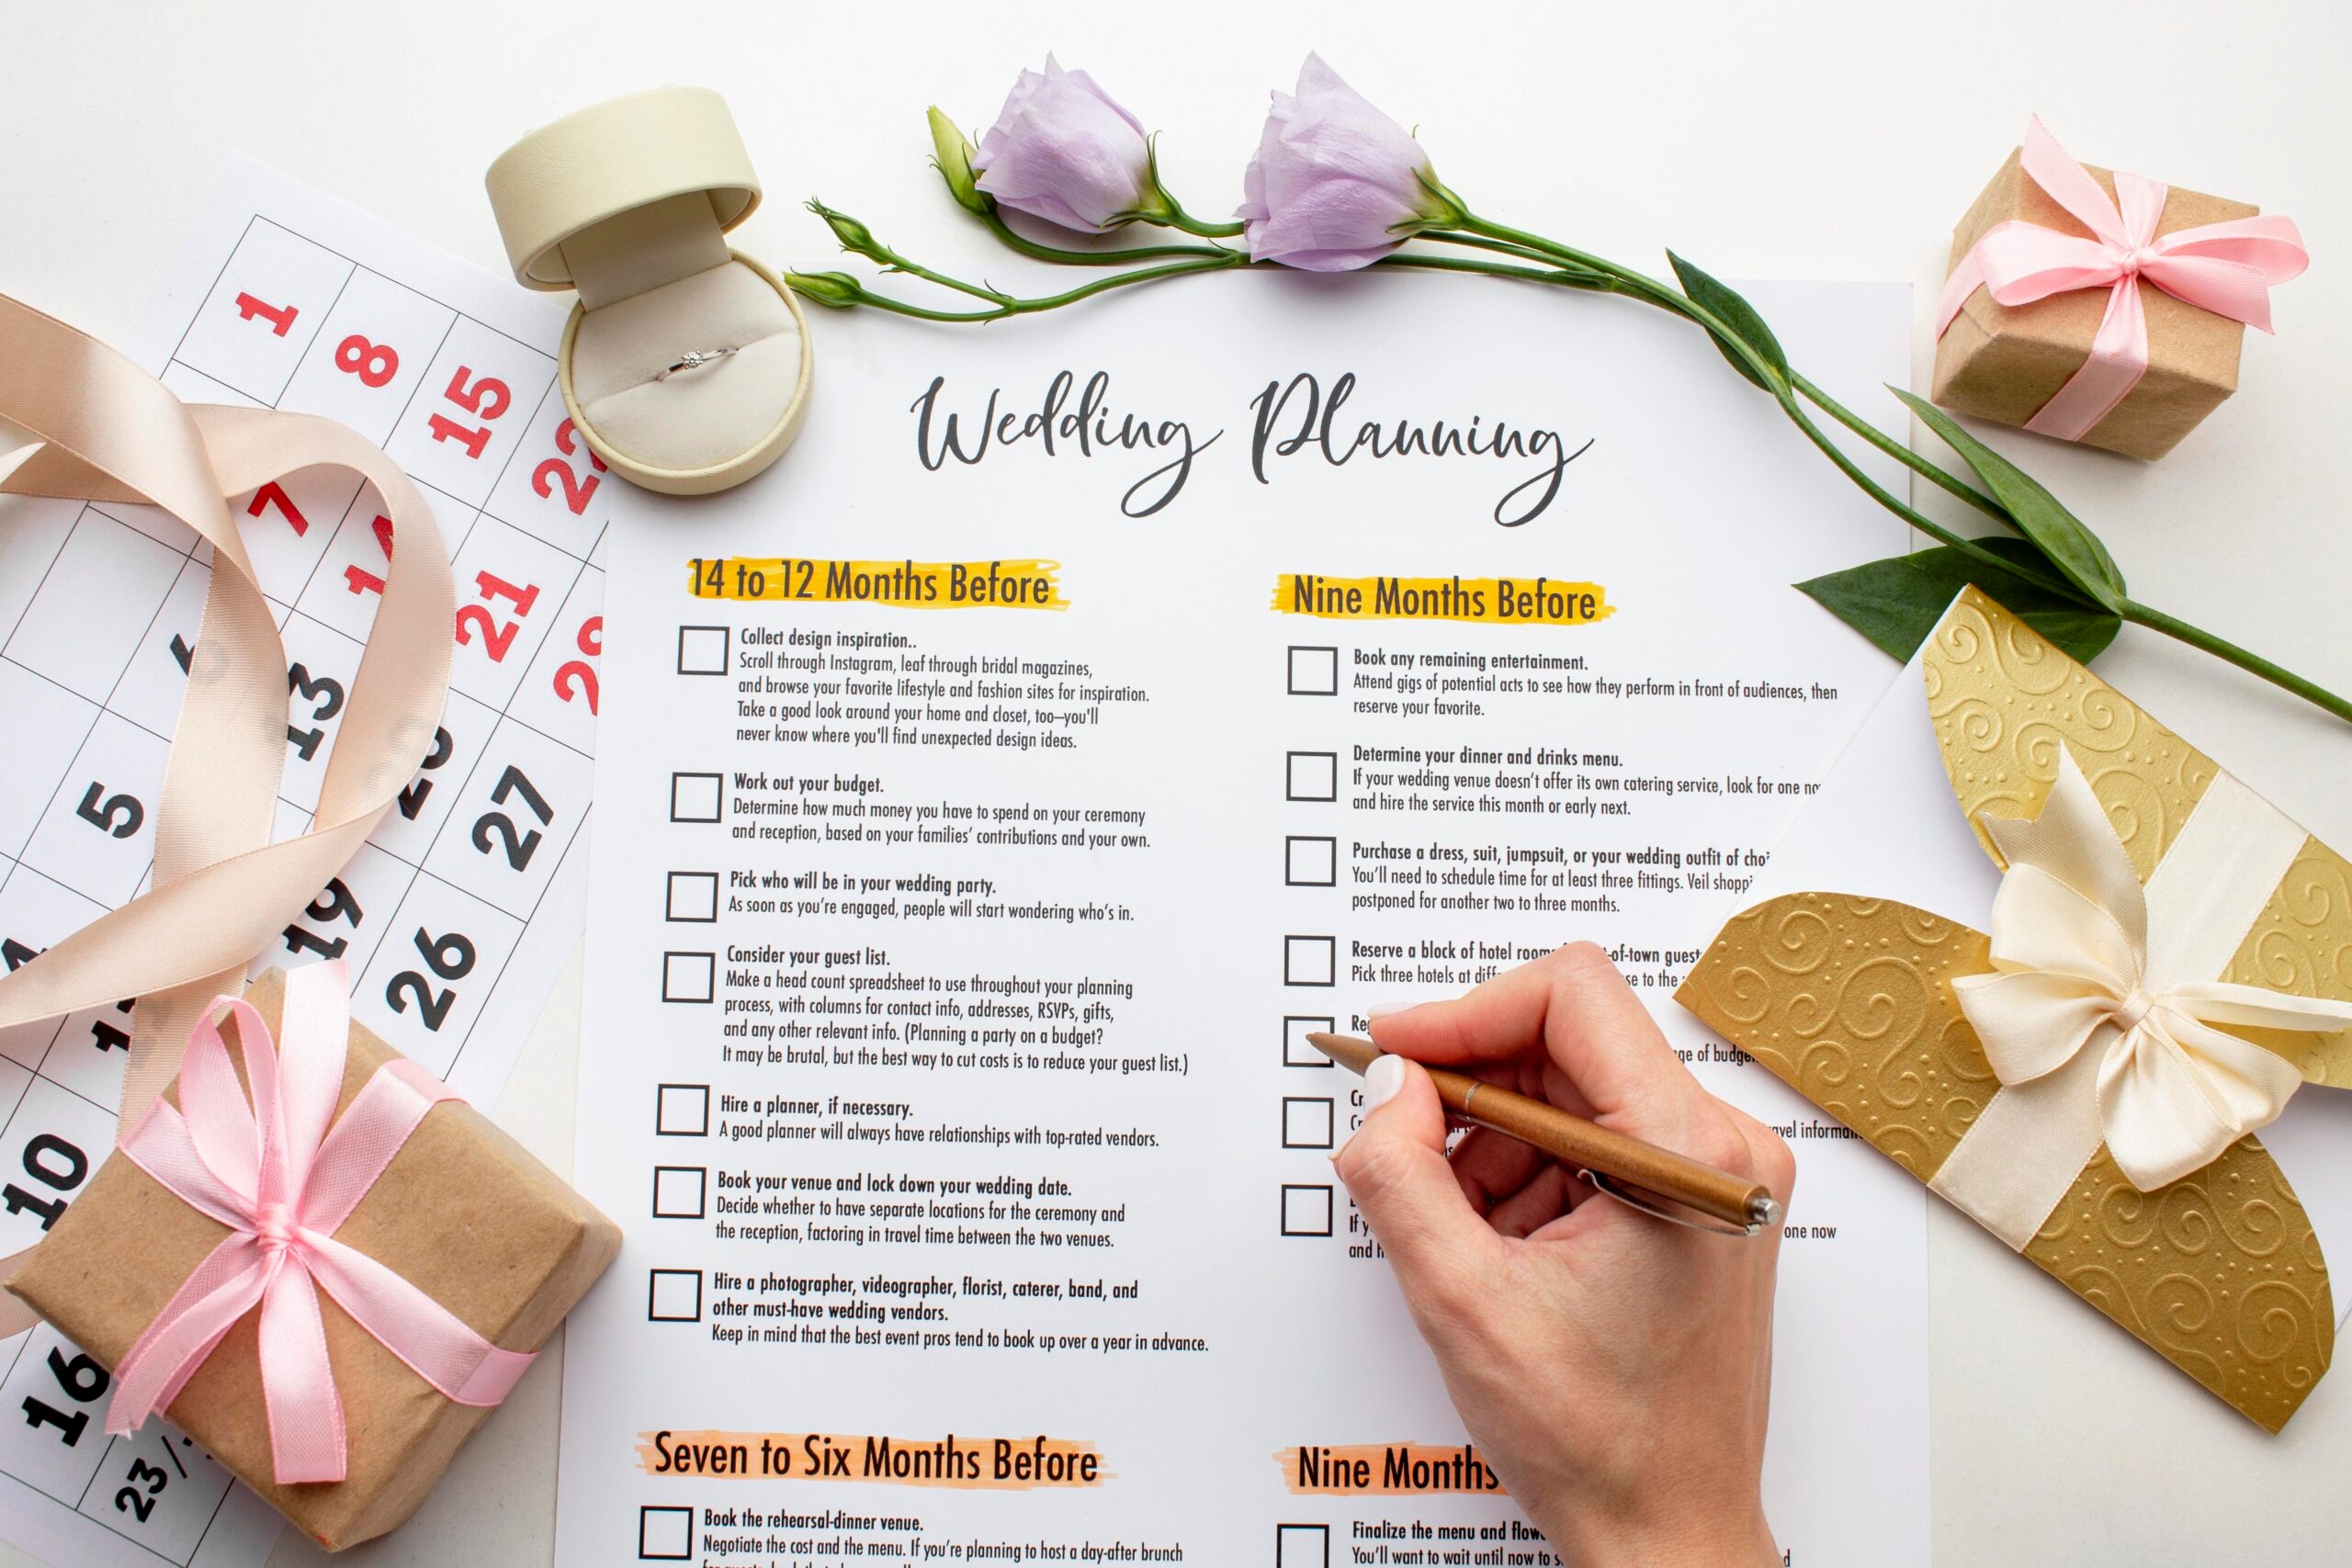 Wedding Planning
14 to 12 Months Before
Collect design inspiration..
Scroll through Instagram, leaf through bridal magazines,
and browse your favorite lifestyle and fashion sites for inspiration.
Take a good look around your home and closet, too–you'll
never know where you'll find unexpected design ideas.
Work out your budget.
Determine how much money you have to spend on your ceremony
and reception, based on your families’ contributions and your own.
Pick who will be in your wedding party.
As soon as you’re engaged, people will start wondering who’s in.
Consider your guest list.
Make a head count spreadsheet to use throughout your planning
process, with columns for contact info, addresses, RSVPs, gifts,
and any other relevant info. (Planning a party on a budget?
It may be brutal, but the best way to cut costs is to reduce your guest list.)
Hire a planner, if necessary.
A good planner will always have relationships with top-rated vendors.
Book your venue and lock down your wedding date.
Decide whether to have separate locations for the ceremony and
the reception, factoring in travel time between the two venues.
Hire a photographer, videographer, florist, caterer, band, and
other must-have wedding vendors.
Keep in mind that the best event pros tend to book up over a year in advance.
Seven to Six Months Before
Book the rehearsal-dinner venue.
Negotiate the cost and the menu. If you’re planning to host a day-after brunch
Nine Months Before
Book any remaining entertainment.
Attend gigs of potential acts to see how they perform in front of audiences, then
reserve your favorite.
Determine your dinner and drinks menu.
If your wedding venue doesn’t offer its own catering service, look for one
and hire the service this month or early next.
Purchase a dress, suit, jumpsuit, or your wedding outfit of
You’ll need to schedule time for at least three fittings. Veil
postponed for another two to three months.
Reserve a block of hotel -of-town
Pick three hotels at to the
of
If
and
one now
Nine Months
Finalize the menu and
You’ll want to wait until now to
1 8 15
7 21
6 13
5 27
19 26
10
16
23/